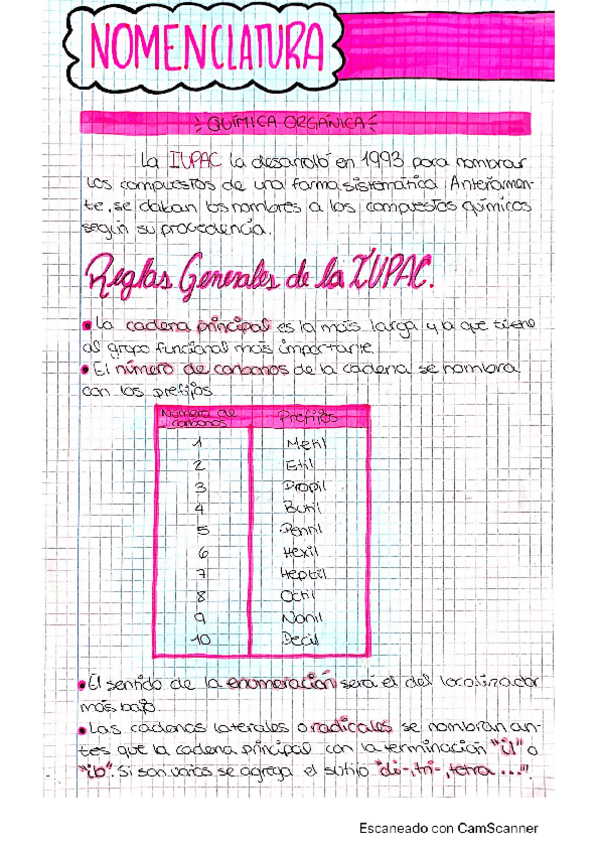 NOMENCLATURA
QUÍMICA ORGÁNICA
La IUPAC la desarrolló en 1993 para nombrar
los compuestos de una forma sistemática. Anteriormen-
te, se daban los nombres a los compuestos químicos
según su procedencia.
Reglas Generales de la IUPAC.
La cadena principal es la más larga y la que tiene
al grupo funcional más importante.
El número de carbonos de la cadena se nombra
con los prefijos
Número de carbonos Prefijos
1 Metil
2 Etil
3 Propil
4 Butil
5 Pentil
6 Hexil
7 Heptil
8 Octil
9 Nonil
10 Decil
El sentido de la enumeración será el del localizador
más bajo.
Las cadenas laterales o radicales se nombran an-
tes que la cadena principal con la terminación "il" o
"ilo". Si son varios se agrega el sufijo "di-, tri-, tetra ...".
Escaneado con CamScanner